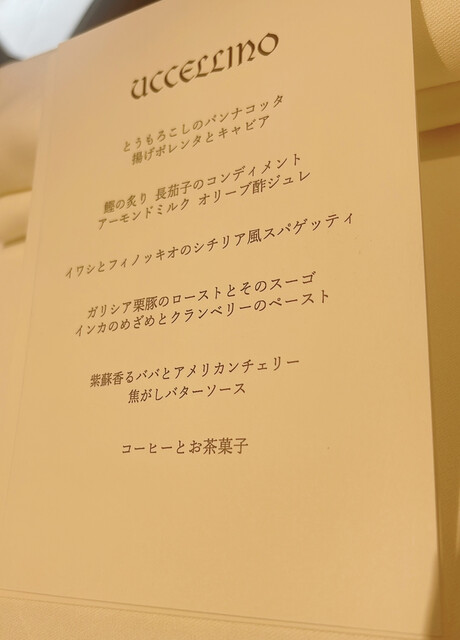 UCCELLINO
とうもろこしのパンナコッタ
揚げポレンタとキャビア
鰹の炙り 長茄子のコンディメント
アーモンドミルク オリーブ酢ジュレ
イワシとフィノッキオのシチリア風スパゲッティ
ガリシア栗豚のローストとそのスーゴ
インカのめざめとクランベリーのペースト
紫蘇香るババとアメリカンチェリー
焦がしバターソース
コーヒーとお茶菓子